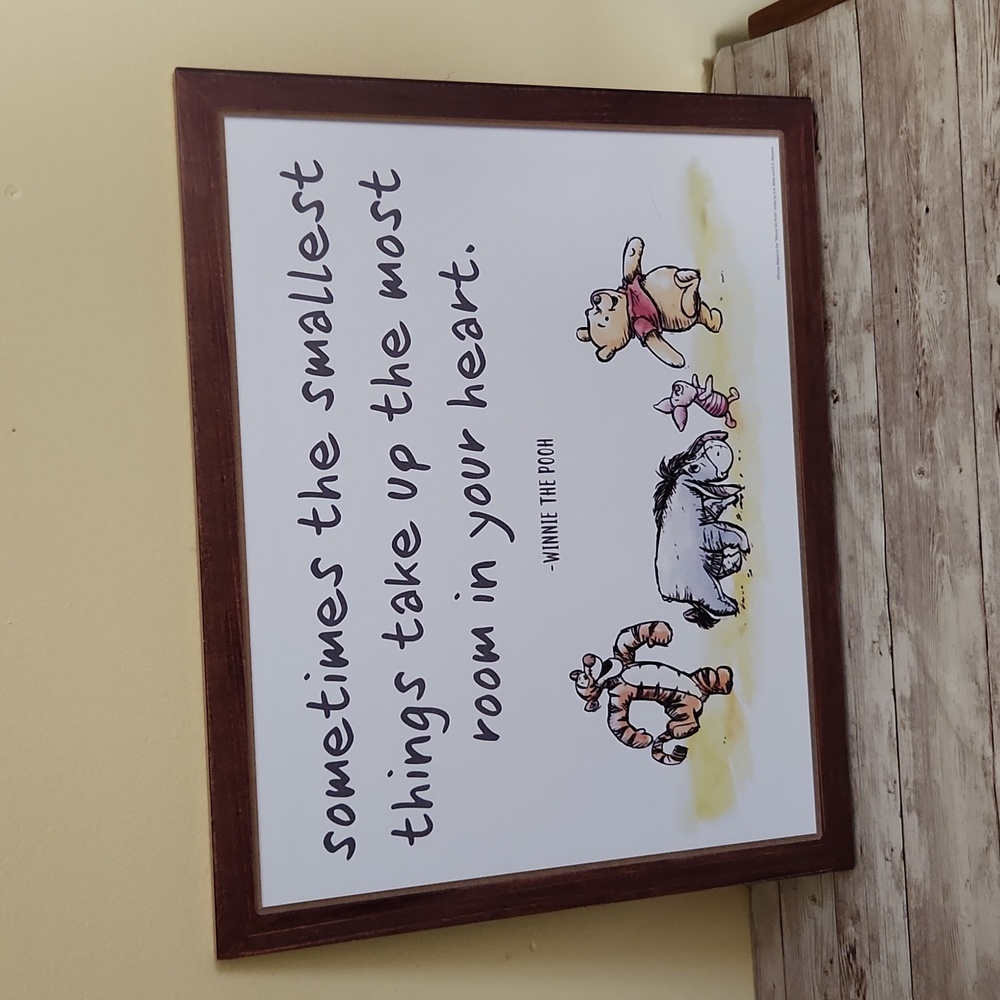 sometimes the smallest
things take up the most
room in your heart.
-WINNIE THE POOH